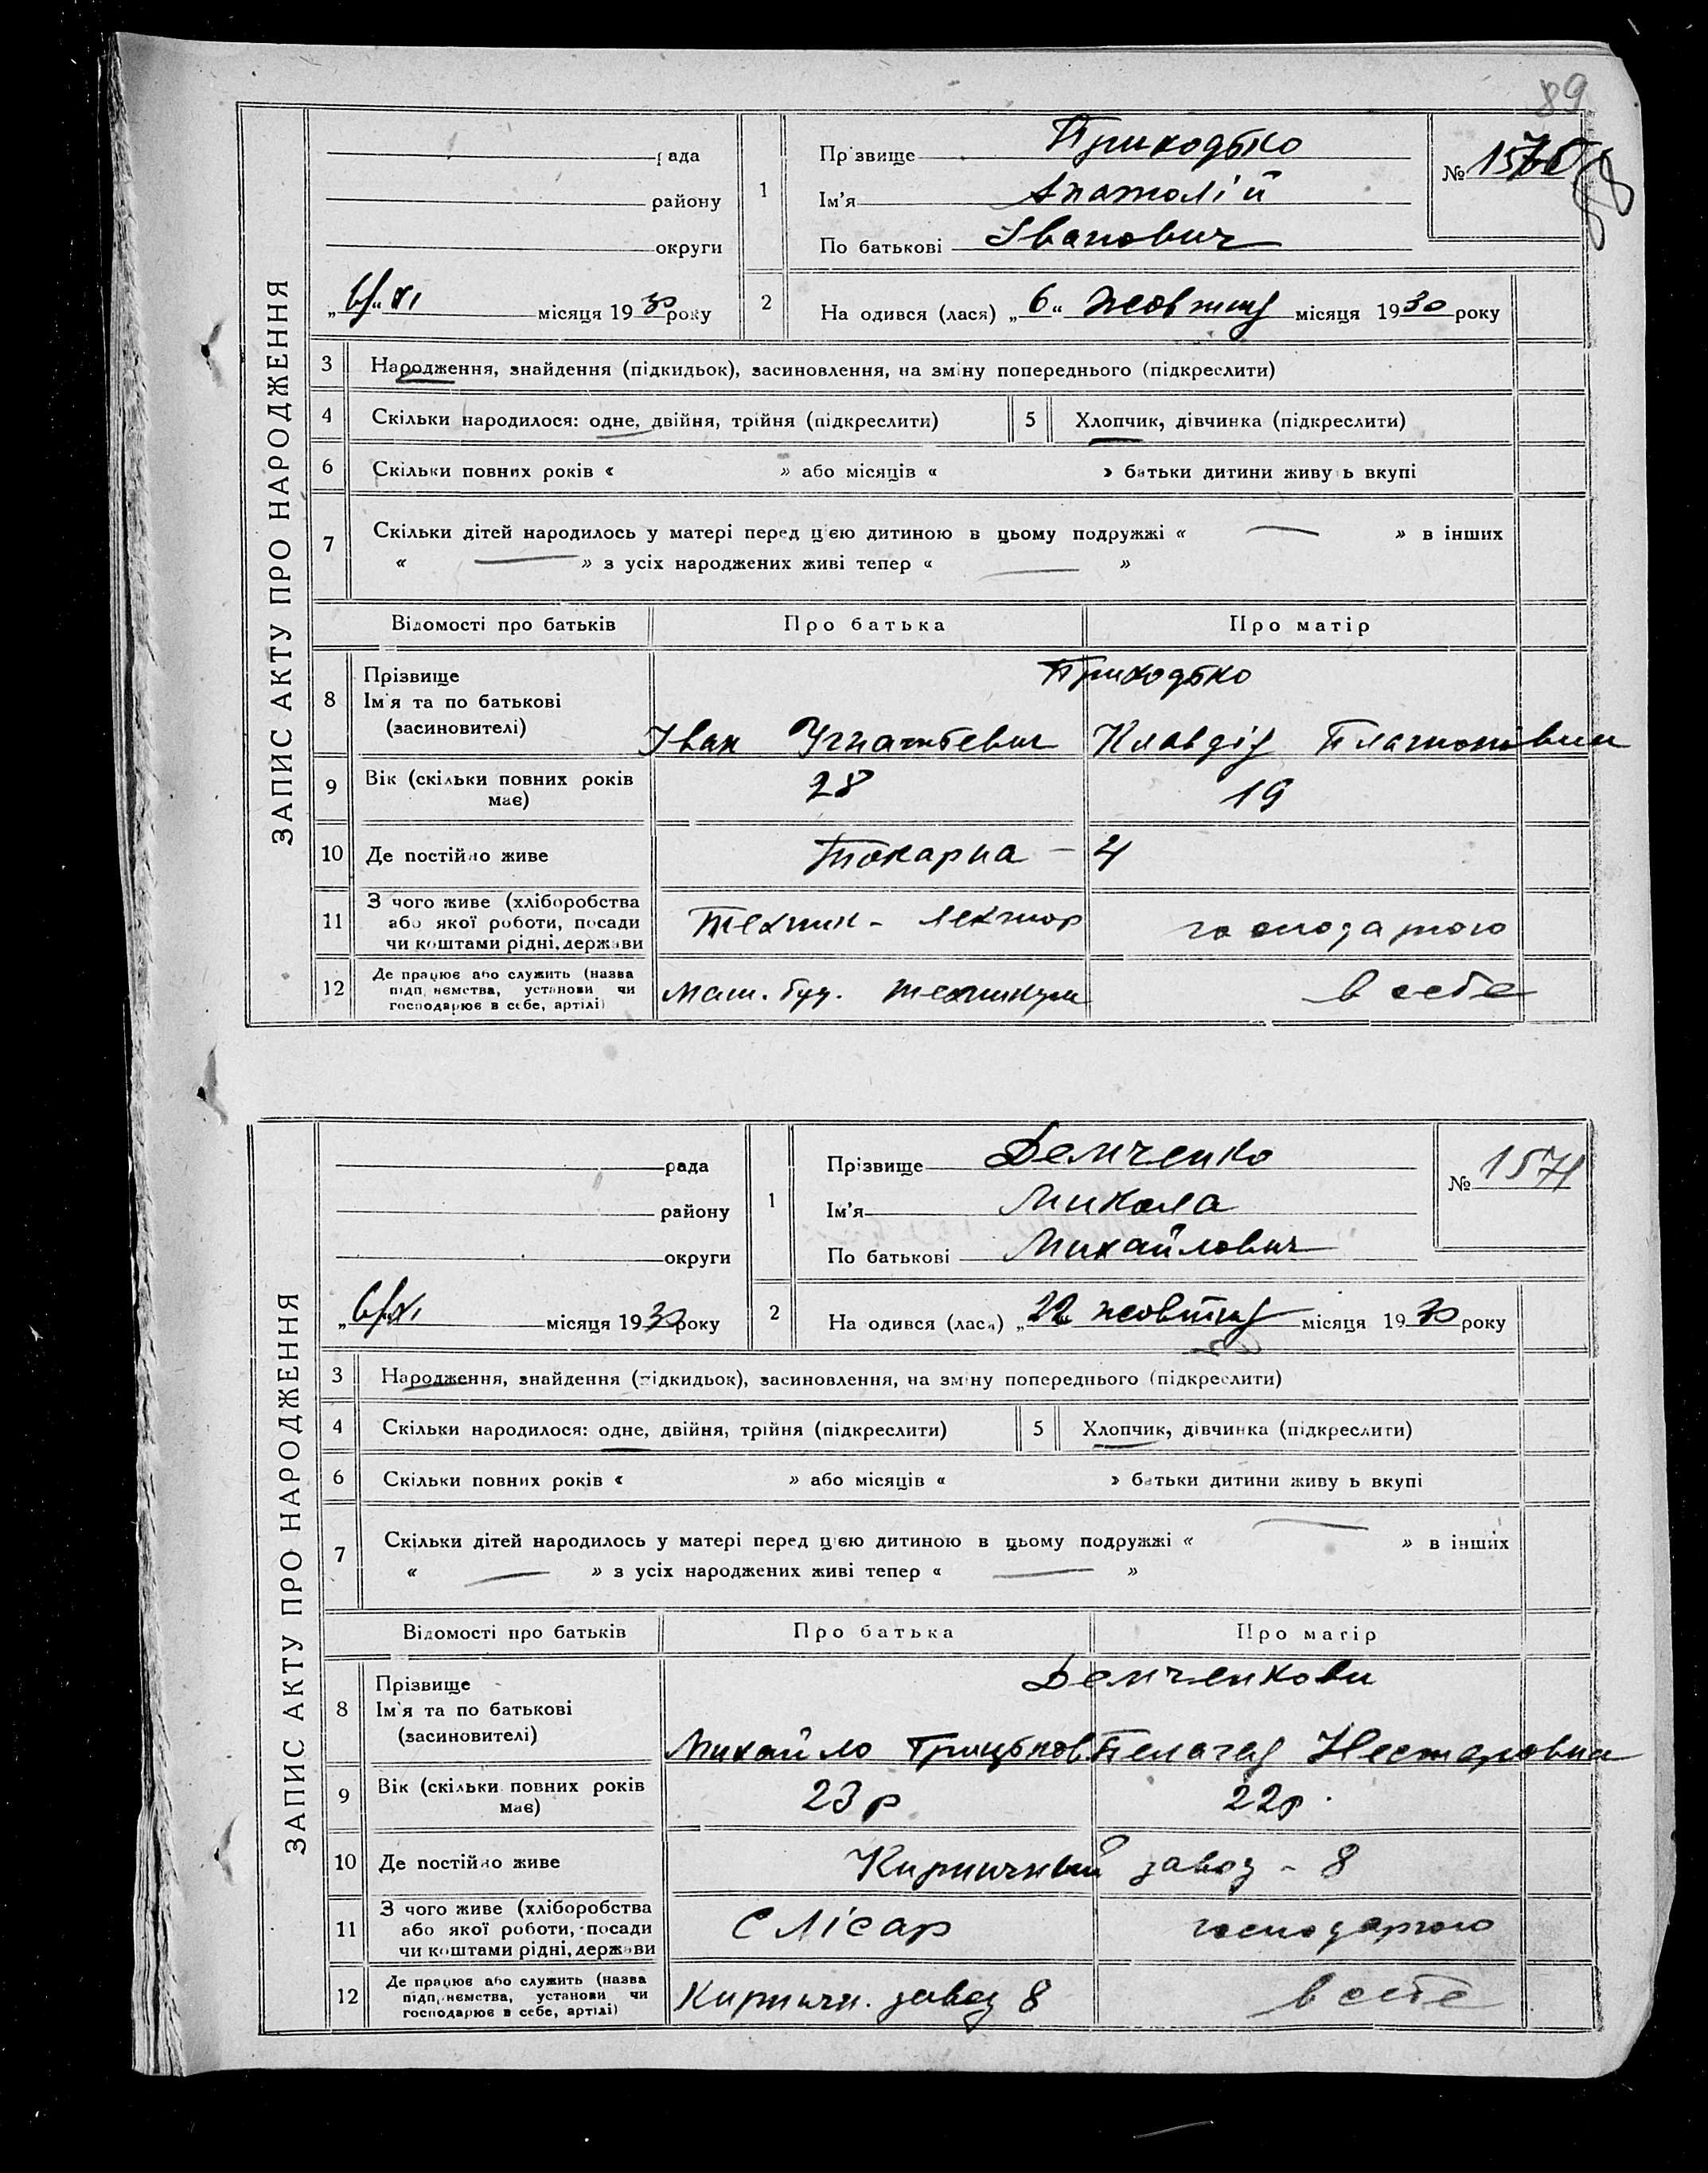 89
ЗАПИС АКТУ ПРО НАРОДЖЕННЯ
рада
району
округи
місяця 1930 року
1
Прізвище Приходько
Ім'я Анатолій
По батькові Іванович
№ 1570
88
2
На одився (лася) „6“ Жовтня місяця 1930 року
3 Народження, знайдення (підкидьок), засиновлення, на зміну попереднього (підкреслити)
4 Скільки народилося: одне, двійня, трійня (підкреслити) 5 Хлопчик, дівчинка (підкреслити)
6 Скільки повних років « » або місяців « » батьки дитини живу ь вкупі
7 Скільки дітей народилось у матері перед цією дитиною в цьому подружжі « — » в інших
« — » з усіх народжених живі тепер « — »
Відомості про батьків Про батька Про матір
8 Прізвище
Ім'я та по батькові
(засиновителі)
Приходько
Іван Угнатьевич Клавдія Платонівни
9 Вік (скільки повних років має) 28 19
10 Де постійно живе Токарна — 4
11 З чого живе (хліборобства
або якої роботи, посади
чи коштами рідні, держави
Технік - лектор господарного
12 Де працює або служить (назва
підприємства, установи чи
господарює в себе, артілі)
Маш. буд. техникум в себе
ЗАПИС АКТУ ПРО НАРОДЖЕННЯ
рада
району
округи
місяця 1930 року
1
Прізвище Демченко
Ім'я Микола
По батькові Михайлович
№ 1571
2
На одився (лася) „22 жовтня місяця 1930 року
3 Народження, знайдення (підкидьок), засиновлення, на зміну попереднього (підкреслити)
4 Скільки народилося: одне, двійня, трійня (підкреслити) 5 Хлопчик, дівчинка (підкреслити)
6 Скільки повних років « » або місяців « » батьки дитини живу ь вкупі
7 Скільки дітей народилось у матері перед цією дитиною в цьому подружжі « — » в інших
« — » з усіх народжених живі тепер « — »
Відомості про батьків Про батька Про матір
8 Прізвище
Ім'я та по батькові
(засиновителі)
Демченкови
Михайло Грицьков Пелагея Несторовна
9 Вік (скільки повних років має) 23 р 22 р.
10 Де постійно живе Кирпичный завод - 8
11 З чого живе (хліборобства
або якої роботи, посади
чи коштами рідні, держави
Слісар господарного
12 Де працює або служить (назва
підприємства, установи чи
господарює в себе, артілі)
Кирпичн. завод 8 в себе